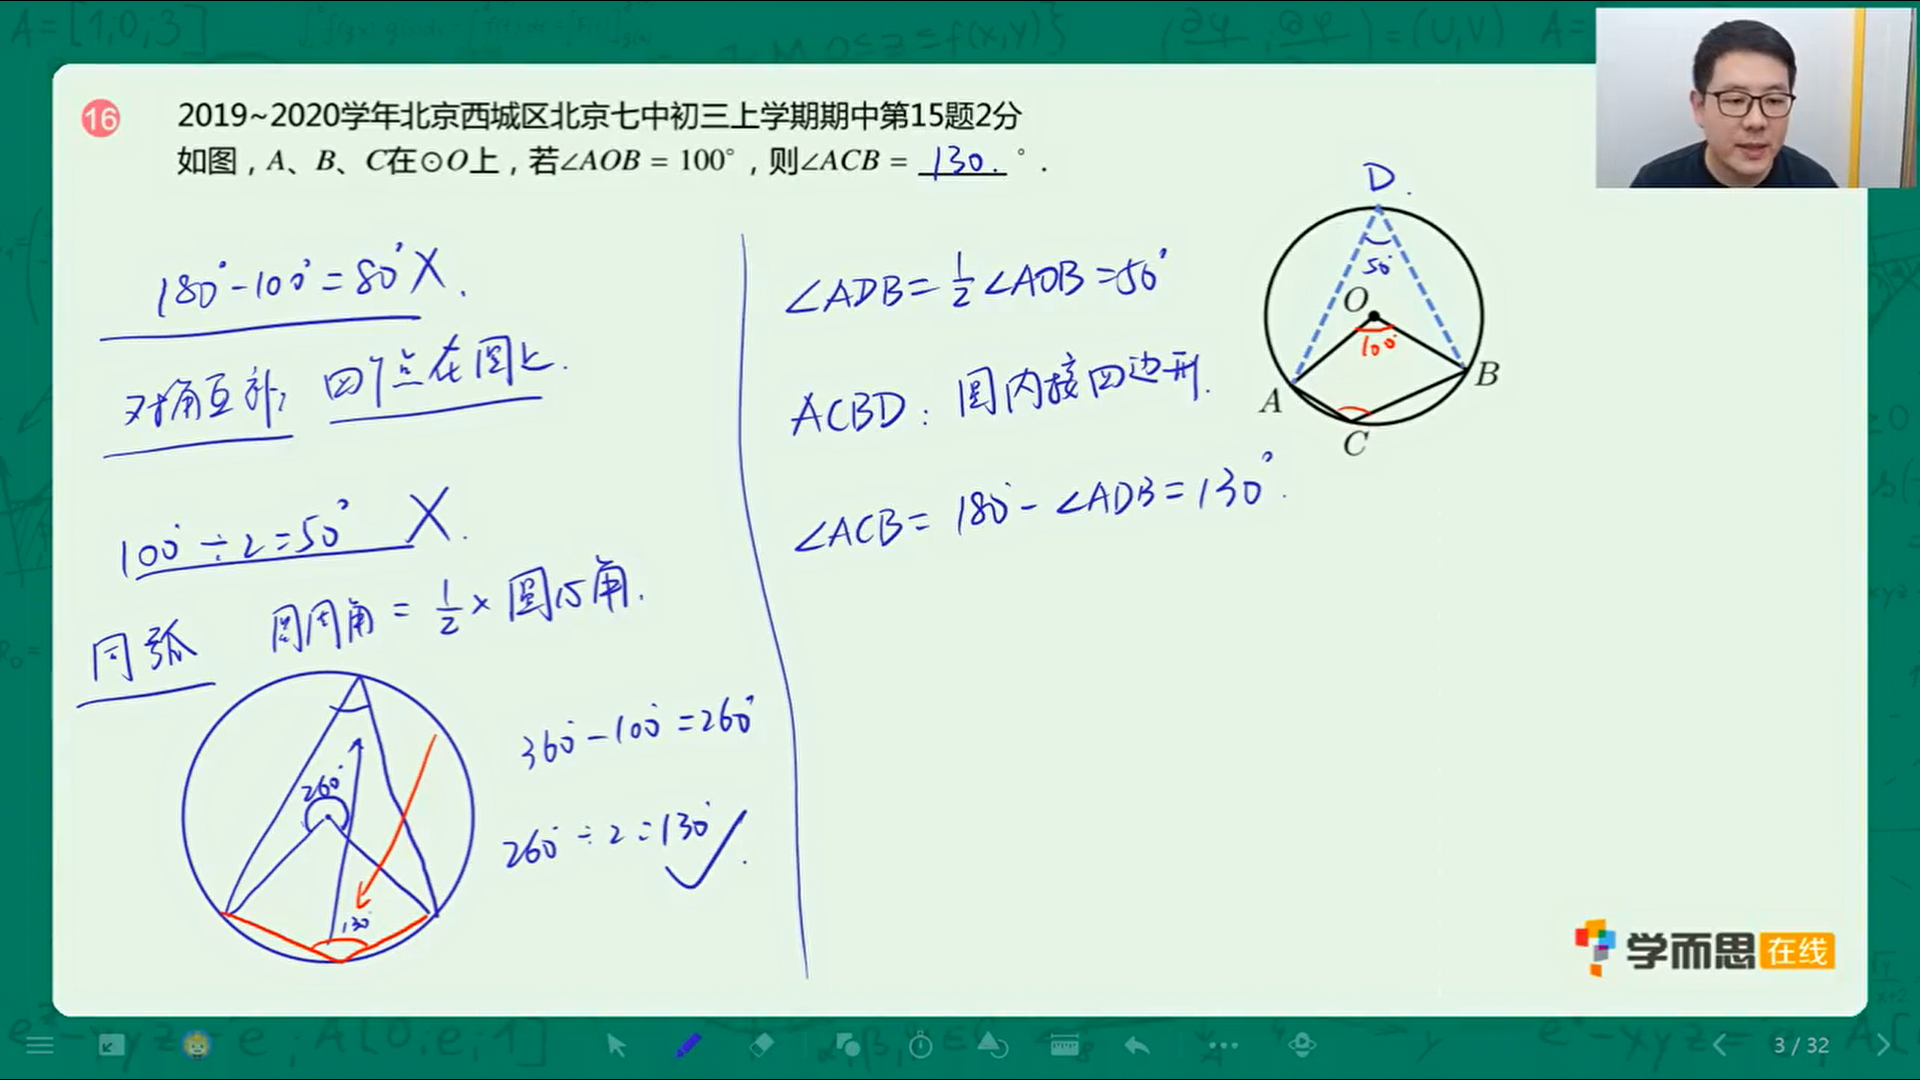 16
2019~2020学年北京西城区北京七中初三上学期期中第15题2分
如图，A、B、C在⊙O上，若∠AOB = 100°，则∠ACB = 130. °．
180°-100°=80° X.
对角互补;
四个点在圆上.
100°÷2=50° X.
同弧
圆周角 = 1/2 × 圆心角.
260°
130°
360°-100°=260°
260°÷2=130° ✓.
∠ADB=1/2∠AOB=50°
ACBD: 圆内接四边形.
∠ACB= 180°-∠ADB=130°.
D.
50°
O
100°
A
B
C
学而思在线
3 / 32